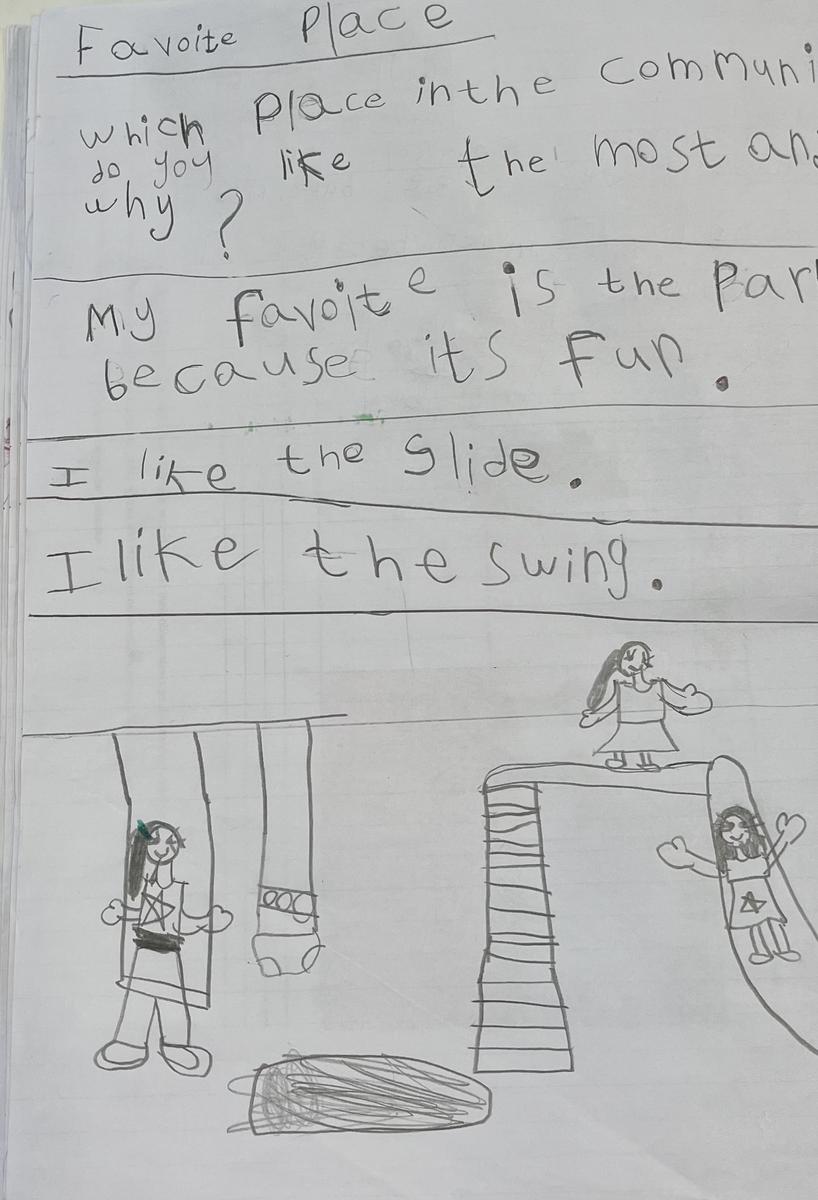 Favoite Place
which place in the communi
do you like the most an
why?
My favoite is the Par
because its fun.
I like the Slide.
I like the swing.